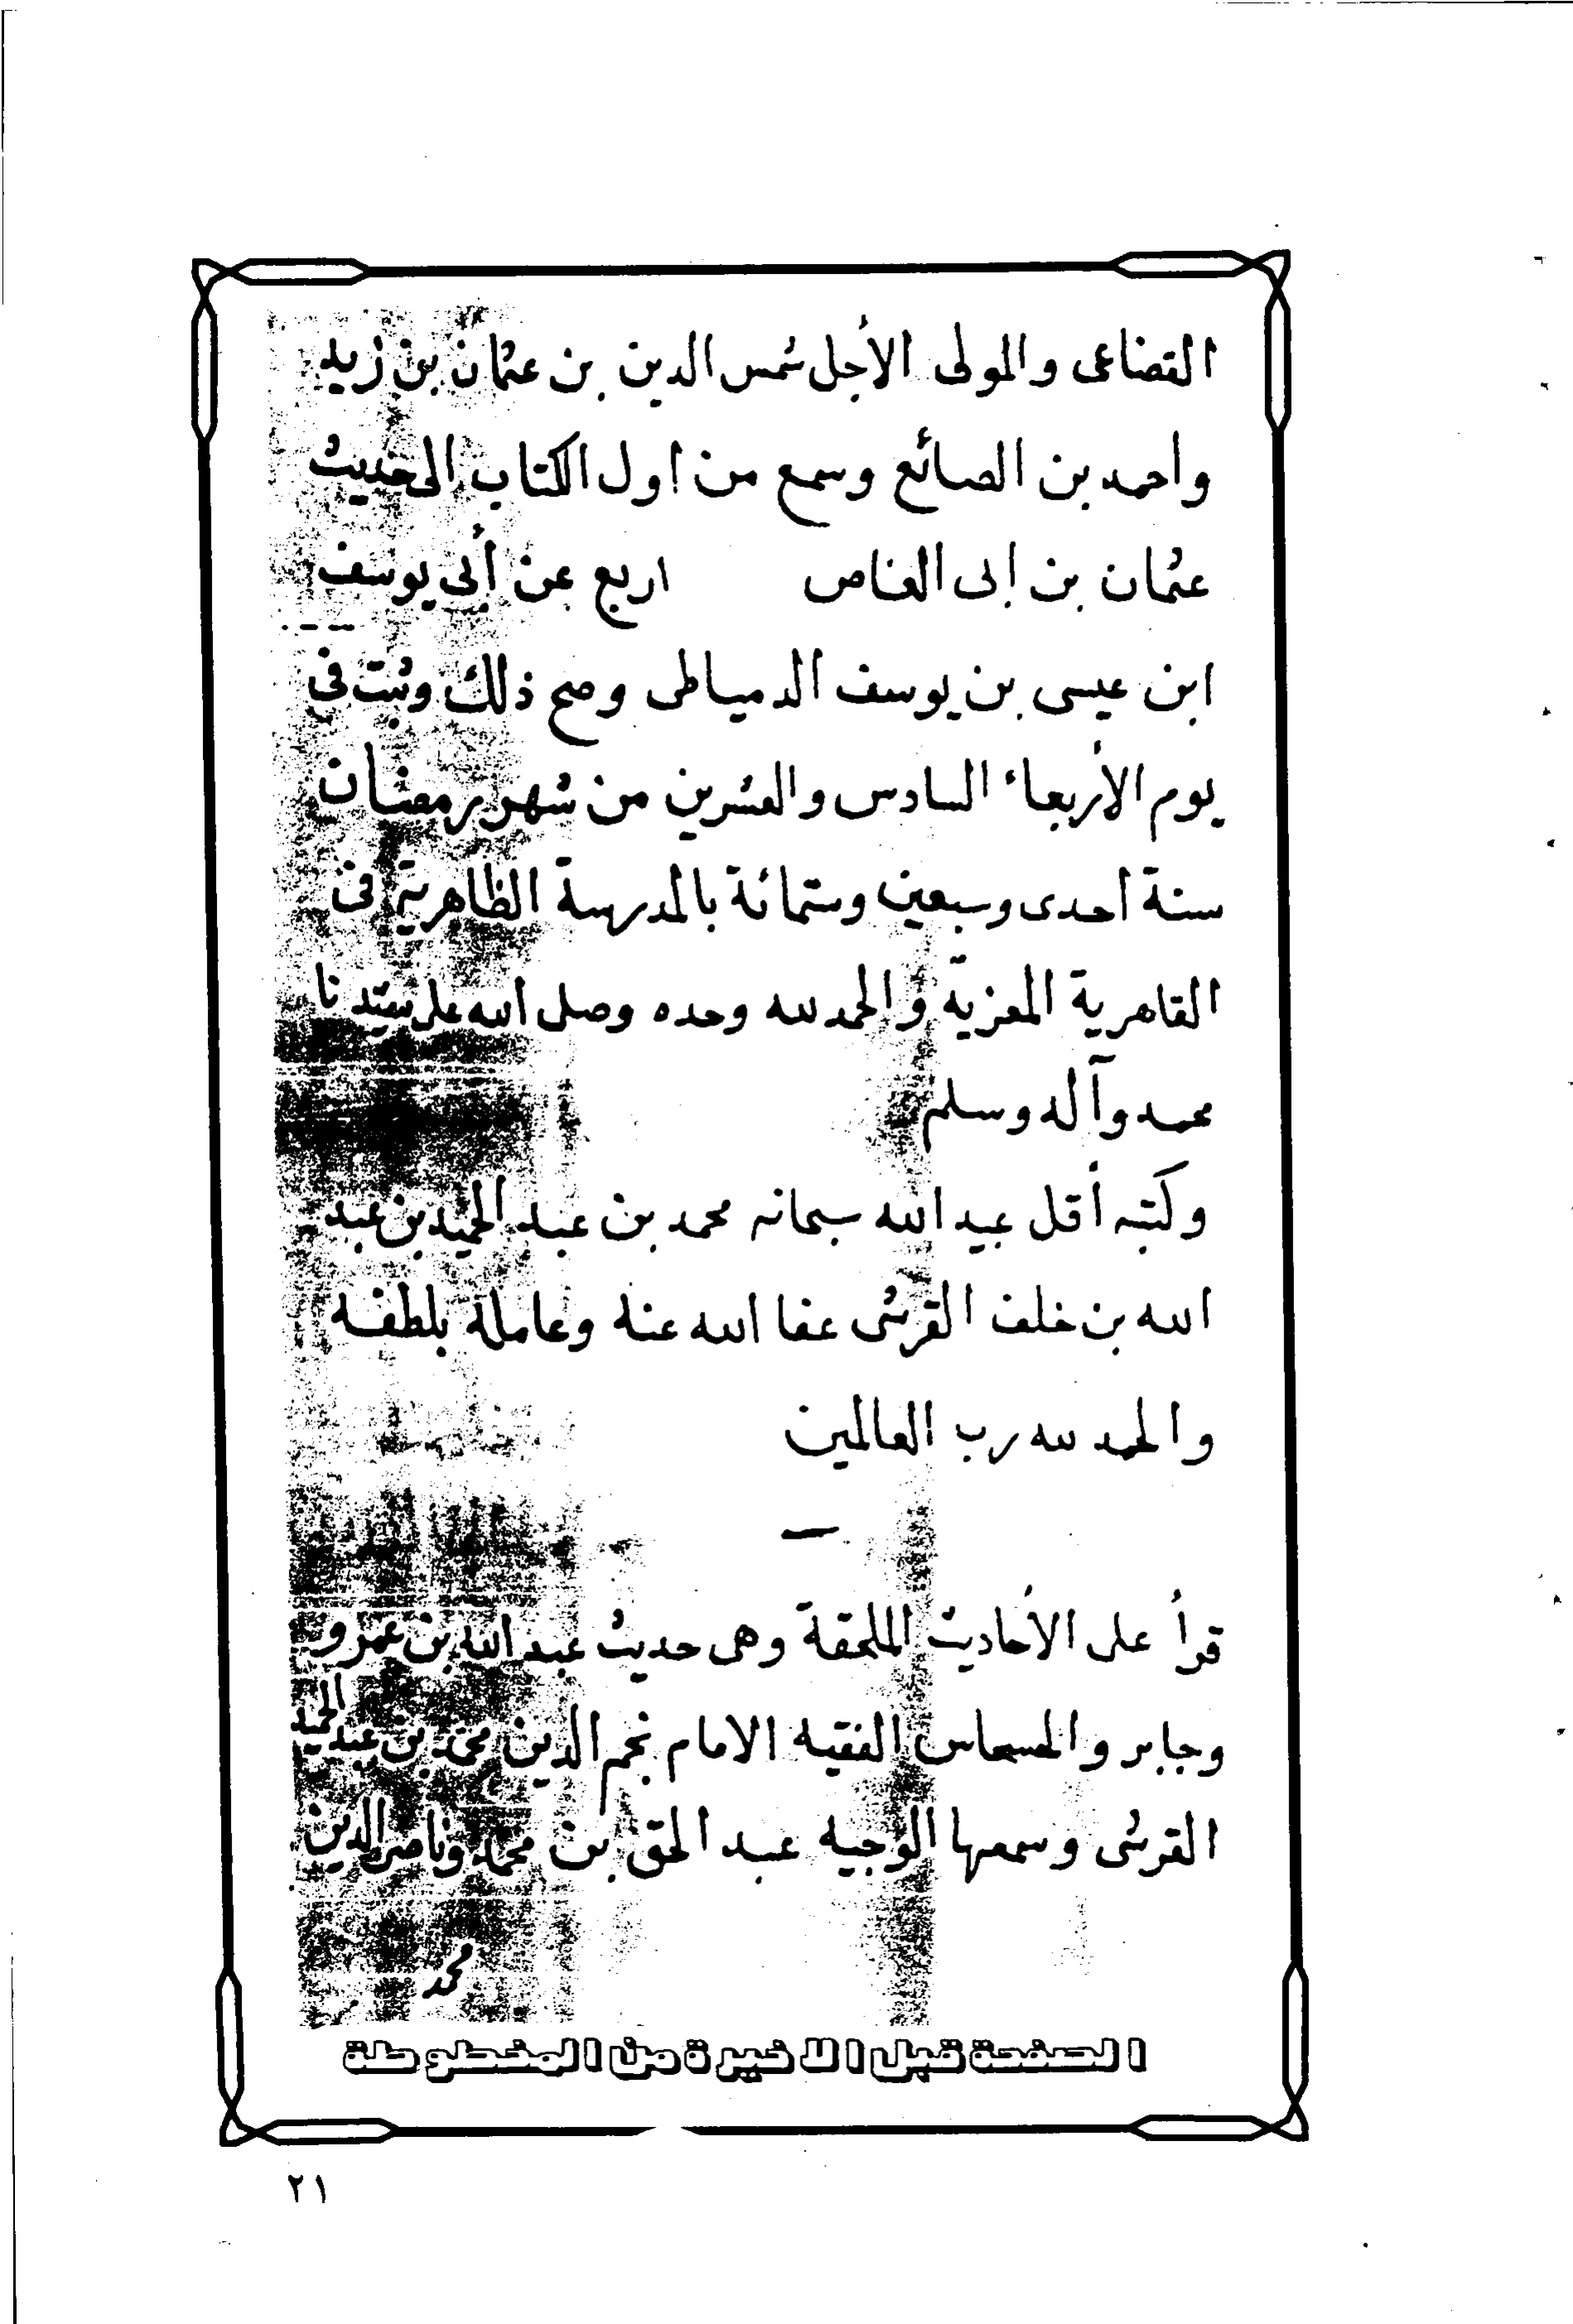 القضاعى والمولى الأجل شمس الدين بن عثمان بن زيد
واحمد بن الصائع وسمع من اول الكتاب الى حديث
عثمان بن ابى العاص اربع عن أبى يوسف
ابن عيسى بن يوسف الدمياطى وصح ذلك وثبت فى
يوم الأربعاء السادس والعشرين من شهر رمضان
سنة احدى وسبعين وستمائة بالمدرسة الظاهرية فى
القاهرية المعزية والحمد لله وحده وصلى الله على سيدنا
محمد وآله وسلم
وكتبه أقل عبيد الله سبحانه محمد بن عبد الحميد بن عبد
الله بن خلف القرشى عفا الله عنة وعاملة بلطفه
والحمد لله رب العالمين
قرأ على الأحاديث الملحقة وهى حديث عبد الله بن عمرو
وجابر والحسحاس الفقيه الامام نجم الدين محمد بن عبد الحميد
القرشى وسمعها الوجيه عبد الحق بن محمد وناصر الدين
محمد
الصفحة قبل الاخيرة من المخطوطة
٢١